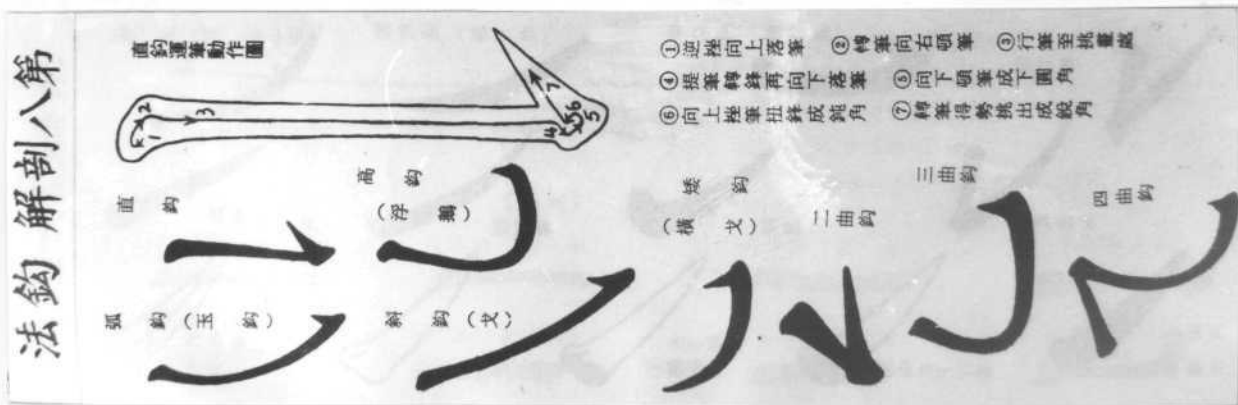 第八剖解鈎法
直鈎運筆動作圖
1
2
3
4
5
6
7
①逆挫向上落筆
②轉筆向右頓筆
③行筆至挑畫處
④提筆轉鋒再向下落筆
⑤向下頓筆成下圓角
⑥向上挫筆扭鋒成鈍角
⑦轉筆得勢挑出成銳角
直鈎
高鈎(浮鵝)
矮鈎(橫戈)
二曲鈎
三曲鈎
四曲鈎
弧鈎(玉鈎)
斜鈎(戈)